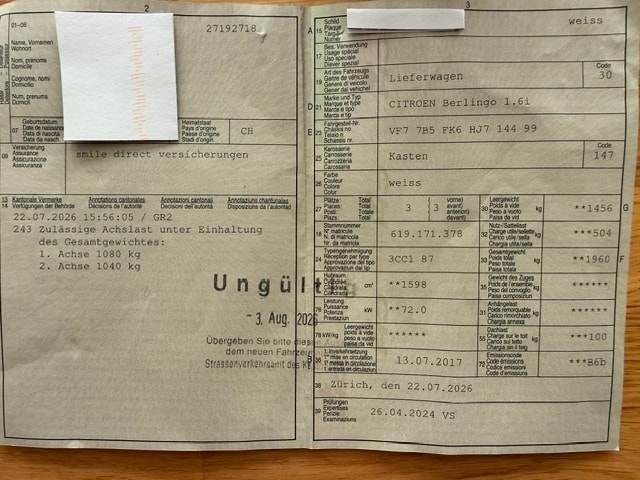 2
01-06
27192718
Name, Vornamen
Wohnort
Nom, prénoms
Domicile
Cognome, nomi
Domicilio
Num, prenums
Domicil
07
Geburtsdatum
Date de naissance
Data di nascita
Data da nasch.
Heimatstaat
Pays d'origine
Paese d'origine
Stadi d'origin
CH
09
Versicherung
Assurance
Assicurazione
Assicuranza
smile direct versicherungen
13
14
Kantonale Vermerke
Verfügungen der Behörde
Annotations cantonales
Décisions de l'autorité
Annotazioni cantonali
Decisioni dell'autorità
Annotaziuns chantunalas
Decisiuns da l'autoritad
22.07.2026 15:56:05 / GR2
243 Zulässige Achslast unter Einhaltung
des Gesamtgewichtes:
1. Achse 1080 kg
2. Achse 1040 kg
Ungült
- 3. Aug. 2026
Übergeben Sie bitte
dem neuen
Strassenverkehrsamt des
3
A
15
Schild
Plaque
Targa
Numer
weiss
17
Bes. Verwendung
Usage spécial
Uso speciale
Diever spezial
19
Art des Fahrzeugs
Genre de véhicule
Genere di veicolo
Gener dal vehichel
Lieferwagen
Code
30
D
21
Marke und Typ
Marque et type
Marca e tipo
Marca e tip
CITROEN Berlingo 1.6i
E
23
Fahrgestell-Nr.
Châssis no
Telaio n.
Schassis nr.
VF7 7B5 FK6 HJ7 144 99
25
Karosserie
Carrosserie
Carrozzeria
Carossaria
Kasten
Code
147
26
Farbe
Couleur
Colore
Colur
weiss
27
Plätze: Total
Places: Total
Posti: Totale
Plazs: Total
3
3
vorne)
avant)
anteriori)
davant)
30
Leergewicht
Poids à vide
Peso a vuoto
Paisa da vid
kg
**1456
G
18
Stammnummer
N° matricule
N. di matricola
Nr. da matricla
619.171.378
32
Nutz-/Sattellast
Charge utile/sellette
Carico utile/sella
Chargia utila/sella
kg
***504
24
Typengenehmigung
Réception par type
Approvazione del tipo
Approvaziun dal tip
3CC1 87
33
Gesamtgewicht
Poids total
Peso totale
Paisa totala
kg
**1960
F
37
Hubraum
Cylindrée
Cilindrata
cm³
**1598
35
Gewicht des Zuges
Poids de l'ensemble
Peso del convoglio
Paisa cumposiziun
kg
76
Leistung
Puissance
Potenza
Prestaziun
kW
**72.0
31
Anhängelast
Poids remorquable
Carico rimorchiato
Chargia annexa
kg
******
78
kW/kg
Leergewicht
poids à vide
peso a vuoto
paisa da vid
******
55
Dachlast
Charge sur le toit
Carico sul tetto
Chargia sin il tetg
kg
***100
B
36
1. Inverkehrsetzung
1re mise en circulation
1a messa in circolazione
1. entrada en circulaziun
13.07.2017
72
Emissionscode
Code émissions
Codice emissioni
Code d'emissiuns
***B6b
38
Zürich, den 22.07.2026
39
Prüfungen
Expertises
Perizie
Examinaziuns
26.04.2024 VS